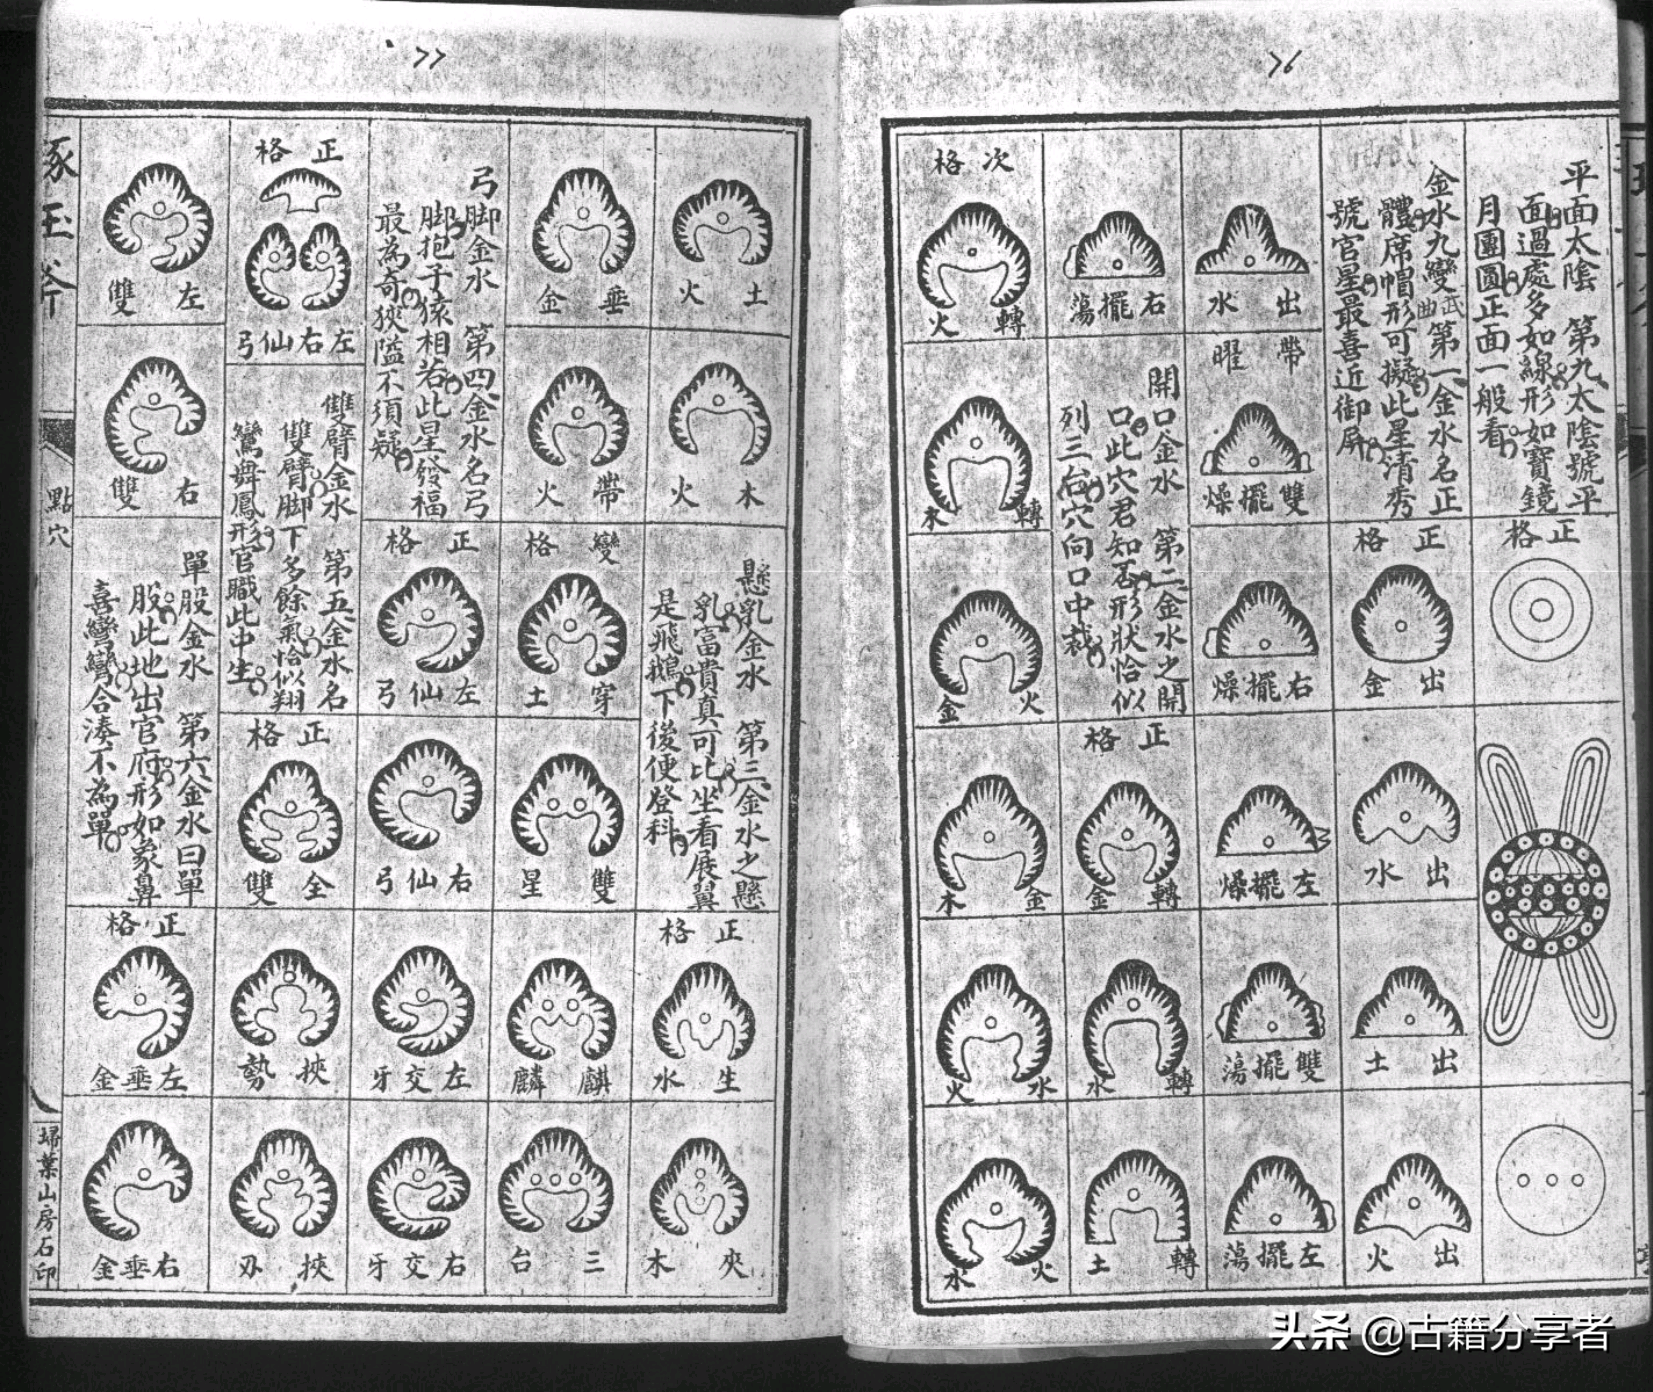 76
平面太陰 第九太陰號平
面過處多如線形如寶鏡
月團圓正面一般看
正格
金水九變武曲第一金水名正
體席帽形可擬此星清秀
號官星最喜近御屏
正格
出金
出水
出土
出火
出水
帶曜
雙擺燥
右擺燥
左擺燥
雙擺蕩
左擺蕩
右擺蕩
開口金水 第二金水之開
口此穴君知否形狀恰似
列三台穴向口中裁
正格
轉金
轉水
轉土
次格
轉火
轉木
火金
金木
水火
火水
77
土火
木火
懸乳金水 第三金水之懸
乳富貴真可比坐看展翼
是飛鵝下後便登科
正格
生水
夾木
垂金
帶火
變格
穿土
雙星
麒麟
三台
弓脚金水 第四金水名弓
脚抱子猿相若此星發福
最為奇狹隘不須疑
正格
左仙弓
右仙弓
左交牙
右交牙
正格
左右仙弓
雙臂金水 第五金水名
雙臂脚下多餘氣恰似翔
鸞舞鳳形官職此中生
正格
全雙
挾勢
挾刃
左雙
右雙
單股金水 第六金水曰單
股此地出官府形如象鼻
喜彎彎合湊不為單
正格
左垂金
右垂金
琢玉斧
點穴
埽葉山房石印
头条 @古籍分享者